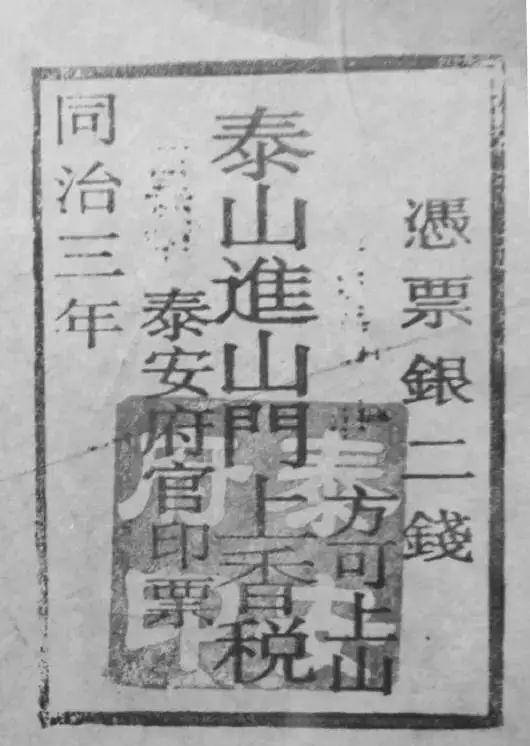 憑票銀二錢
方可上山
泰山進山門上香税
泰安府官印票
同治三年